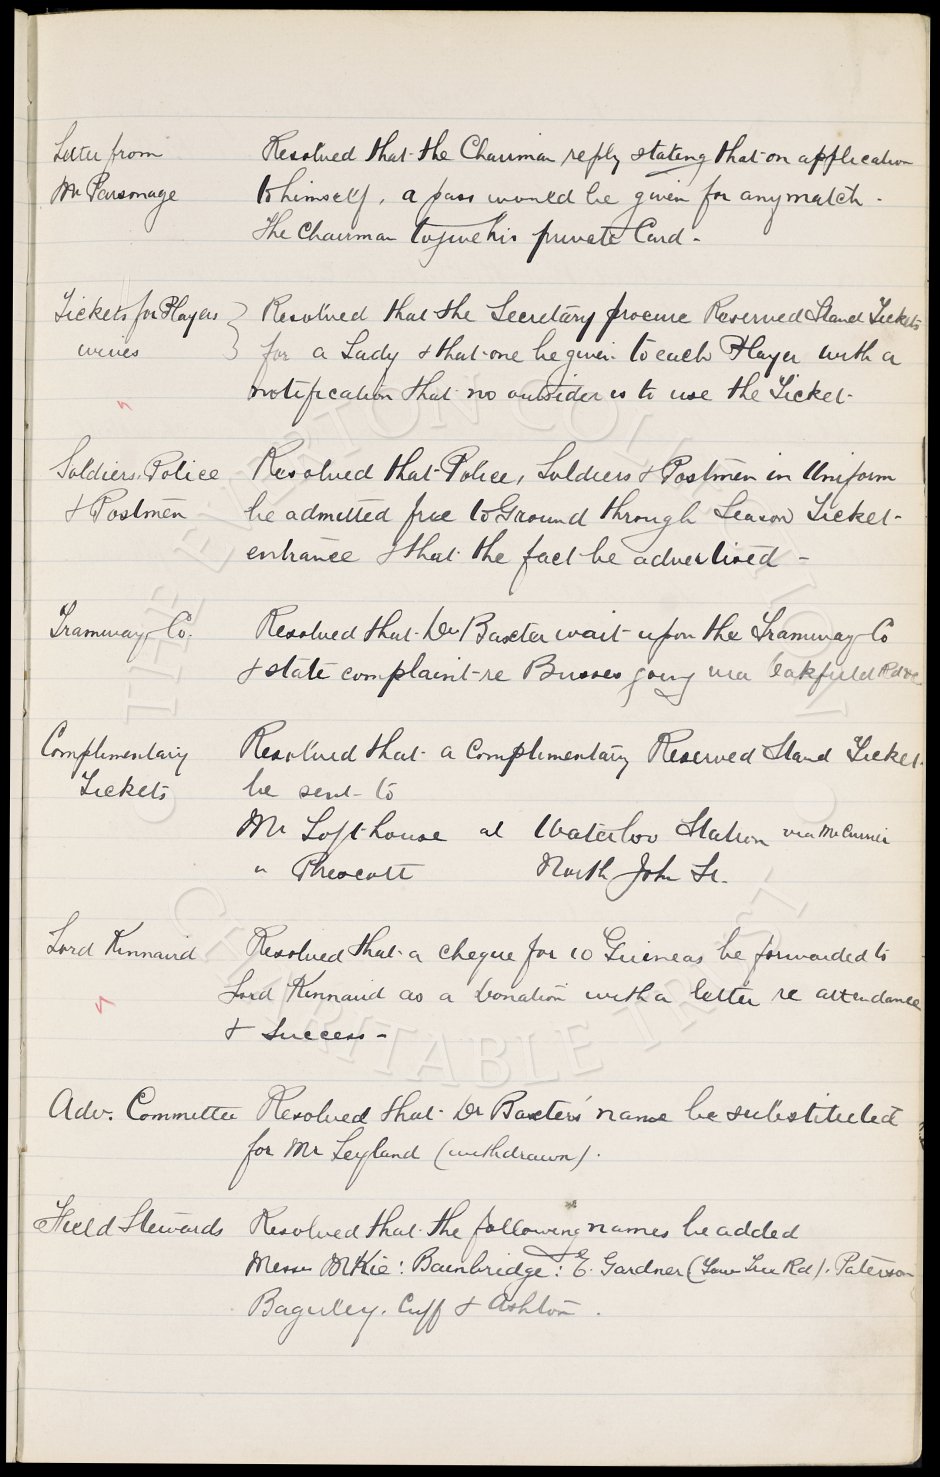 Letter from Resolved that the Chairman reply stating that on application
Mr Parsonage to himself, a pass would be given for any match.
The Chairman to give his private Card.
Tickets for Players Resolved that the Secretary procure Reserved Stand Tickets
wives for a Lady & that one be given to each Player with a
notification that no outsider is to use the Ticket.
Soldiers, Police Resolved that Police, Soldiers & Postmen in Uniform
& Postmen be admitted free to Ground through Season Ticket
entrance & that the fact be advertised -
Tramway Co. Resolved that Dr Baxter wait upon the Tramway Co
& state complaint re Busses going via Oakfield Rd &c
Complimentary Resolved that a Complimentary Reserved Stand Ticket
Tickets be sent to
Mr Lofthouse at Waterloo Station via Mr Currier
" Prescott North John St.
Lord Kinnaird Resolved that a cheque for 10 Guineas be forwarded to
Lord Kinnaird as a Donation with a letter re attendance
& Success -
Adv. Committee Resolved that Dr Baxters' name be substituted
for Mr Leyland (withdrawn).
Field Stewards Resolved that the following names be added
Messrs McKie: Bainbridge: E. Gardner (Rd). Paterson
Baguley. Cuff & Ashton.
THE EVERTON COLLECTION
CHARITABLE TRUST